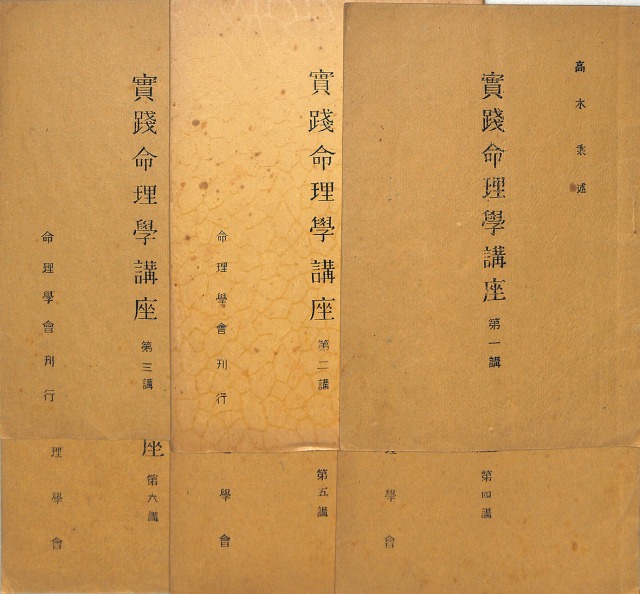 高木乘述
實踐命理學講座 第一講
實踐命理學講座 第二講
命理學會刊行
實踐命理學講座 第三講
命理學會刊行
第四講
理學會
第五講
學會
座 第六講
理學會